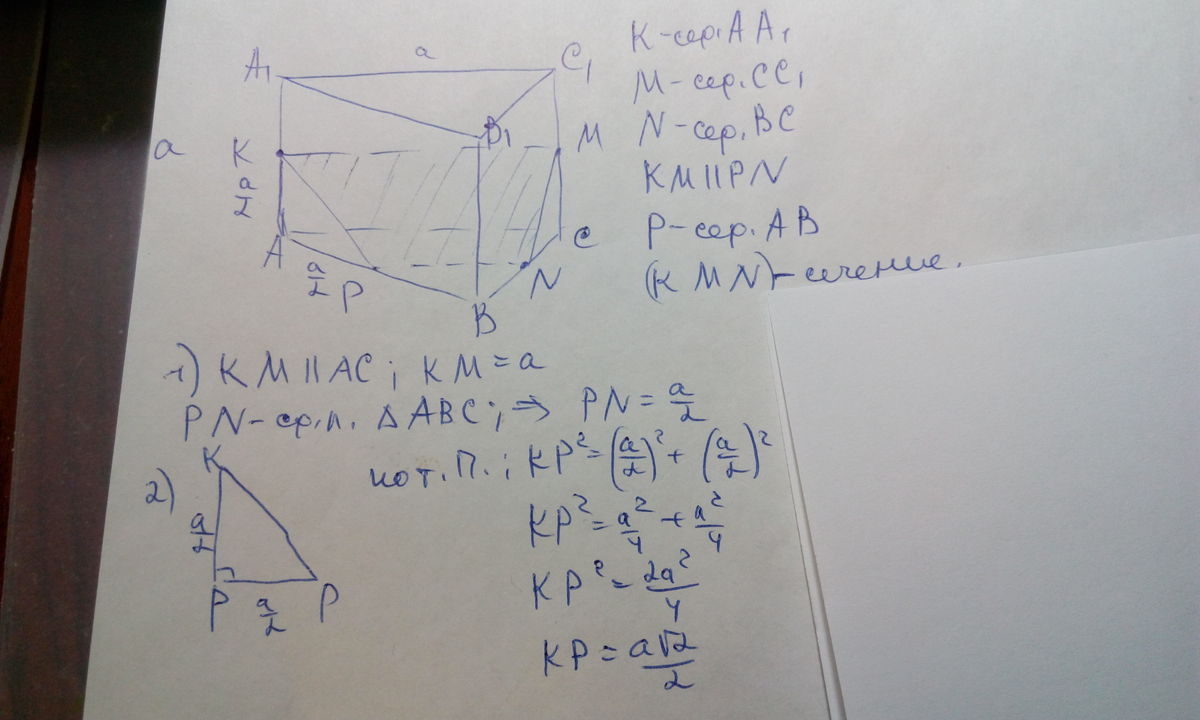 a
A₁
C₁
B₁
a
K
M
a/2
A
C
a/2
P
N
B
K - сер. AA₁
M - сер. CC₁
N - сер. BC
KM || PN
P - сер. AB
(KMN) - сечение.
1) KM || AC; KM = a
PN - ср.л. Δ ABC; ⇒ PN = a/2
2)
K
a/2
P
a/2
P
по т. П.; KP² = (a/2)² + (a/2)²
KP² = a²/4 + a²/4
KP² = 2a²/4
KP = a√2/2